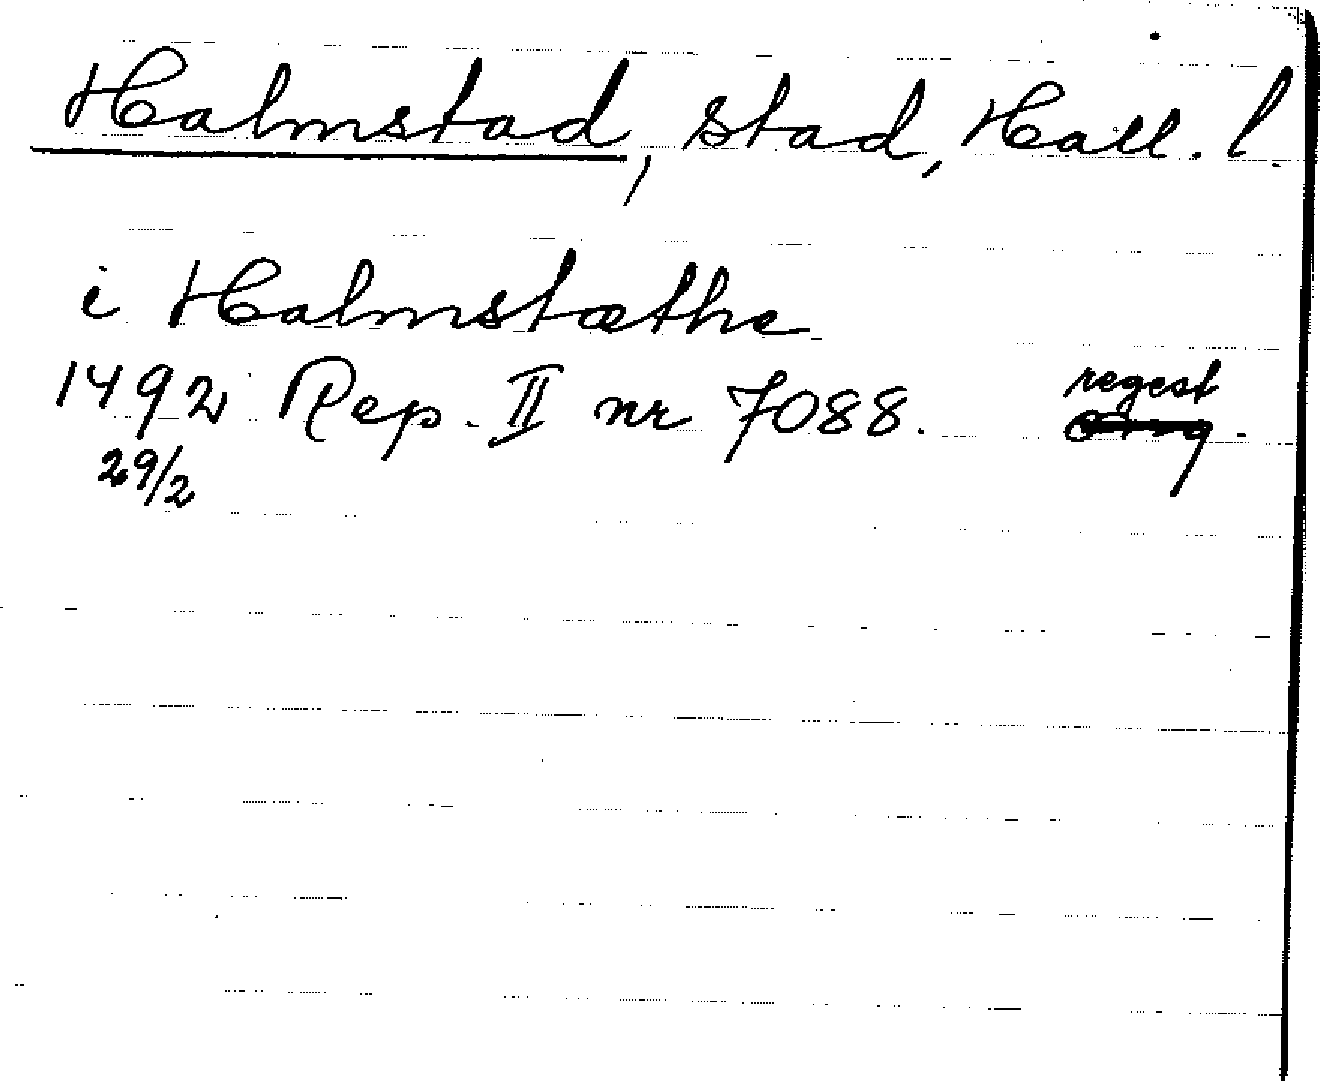 Halmstad, stad, Hall. l.
i Halmstæthe
1492 Rep. II nr 7088. regest
29/2